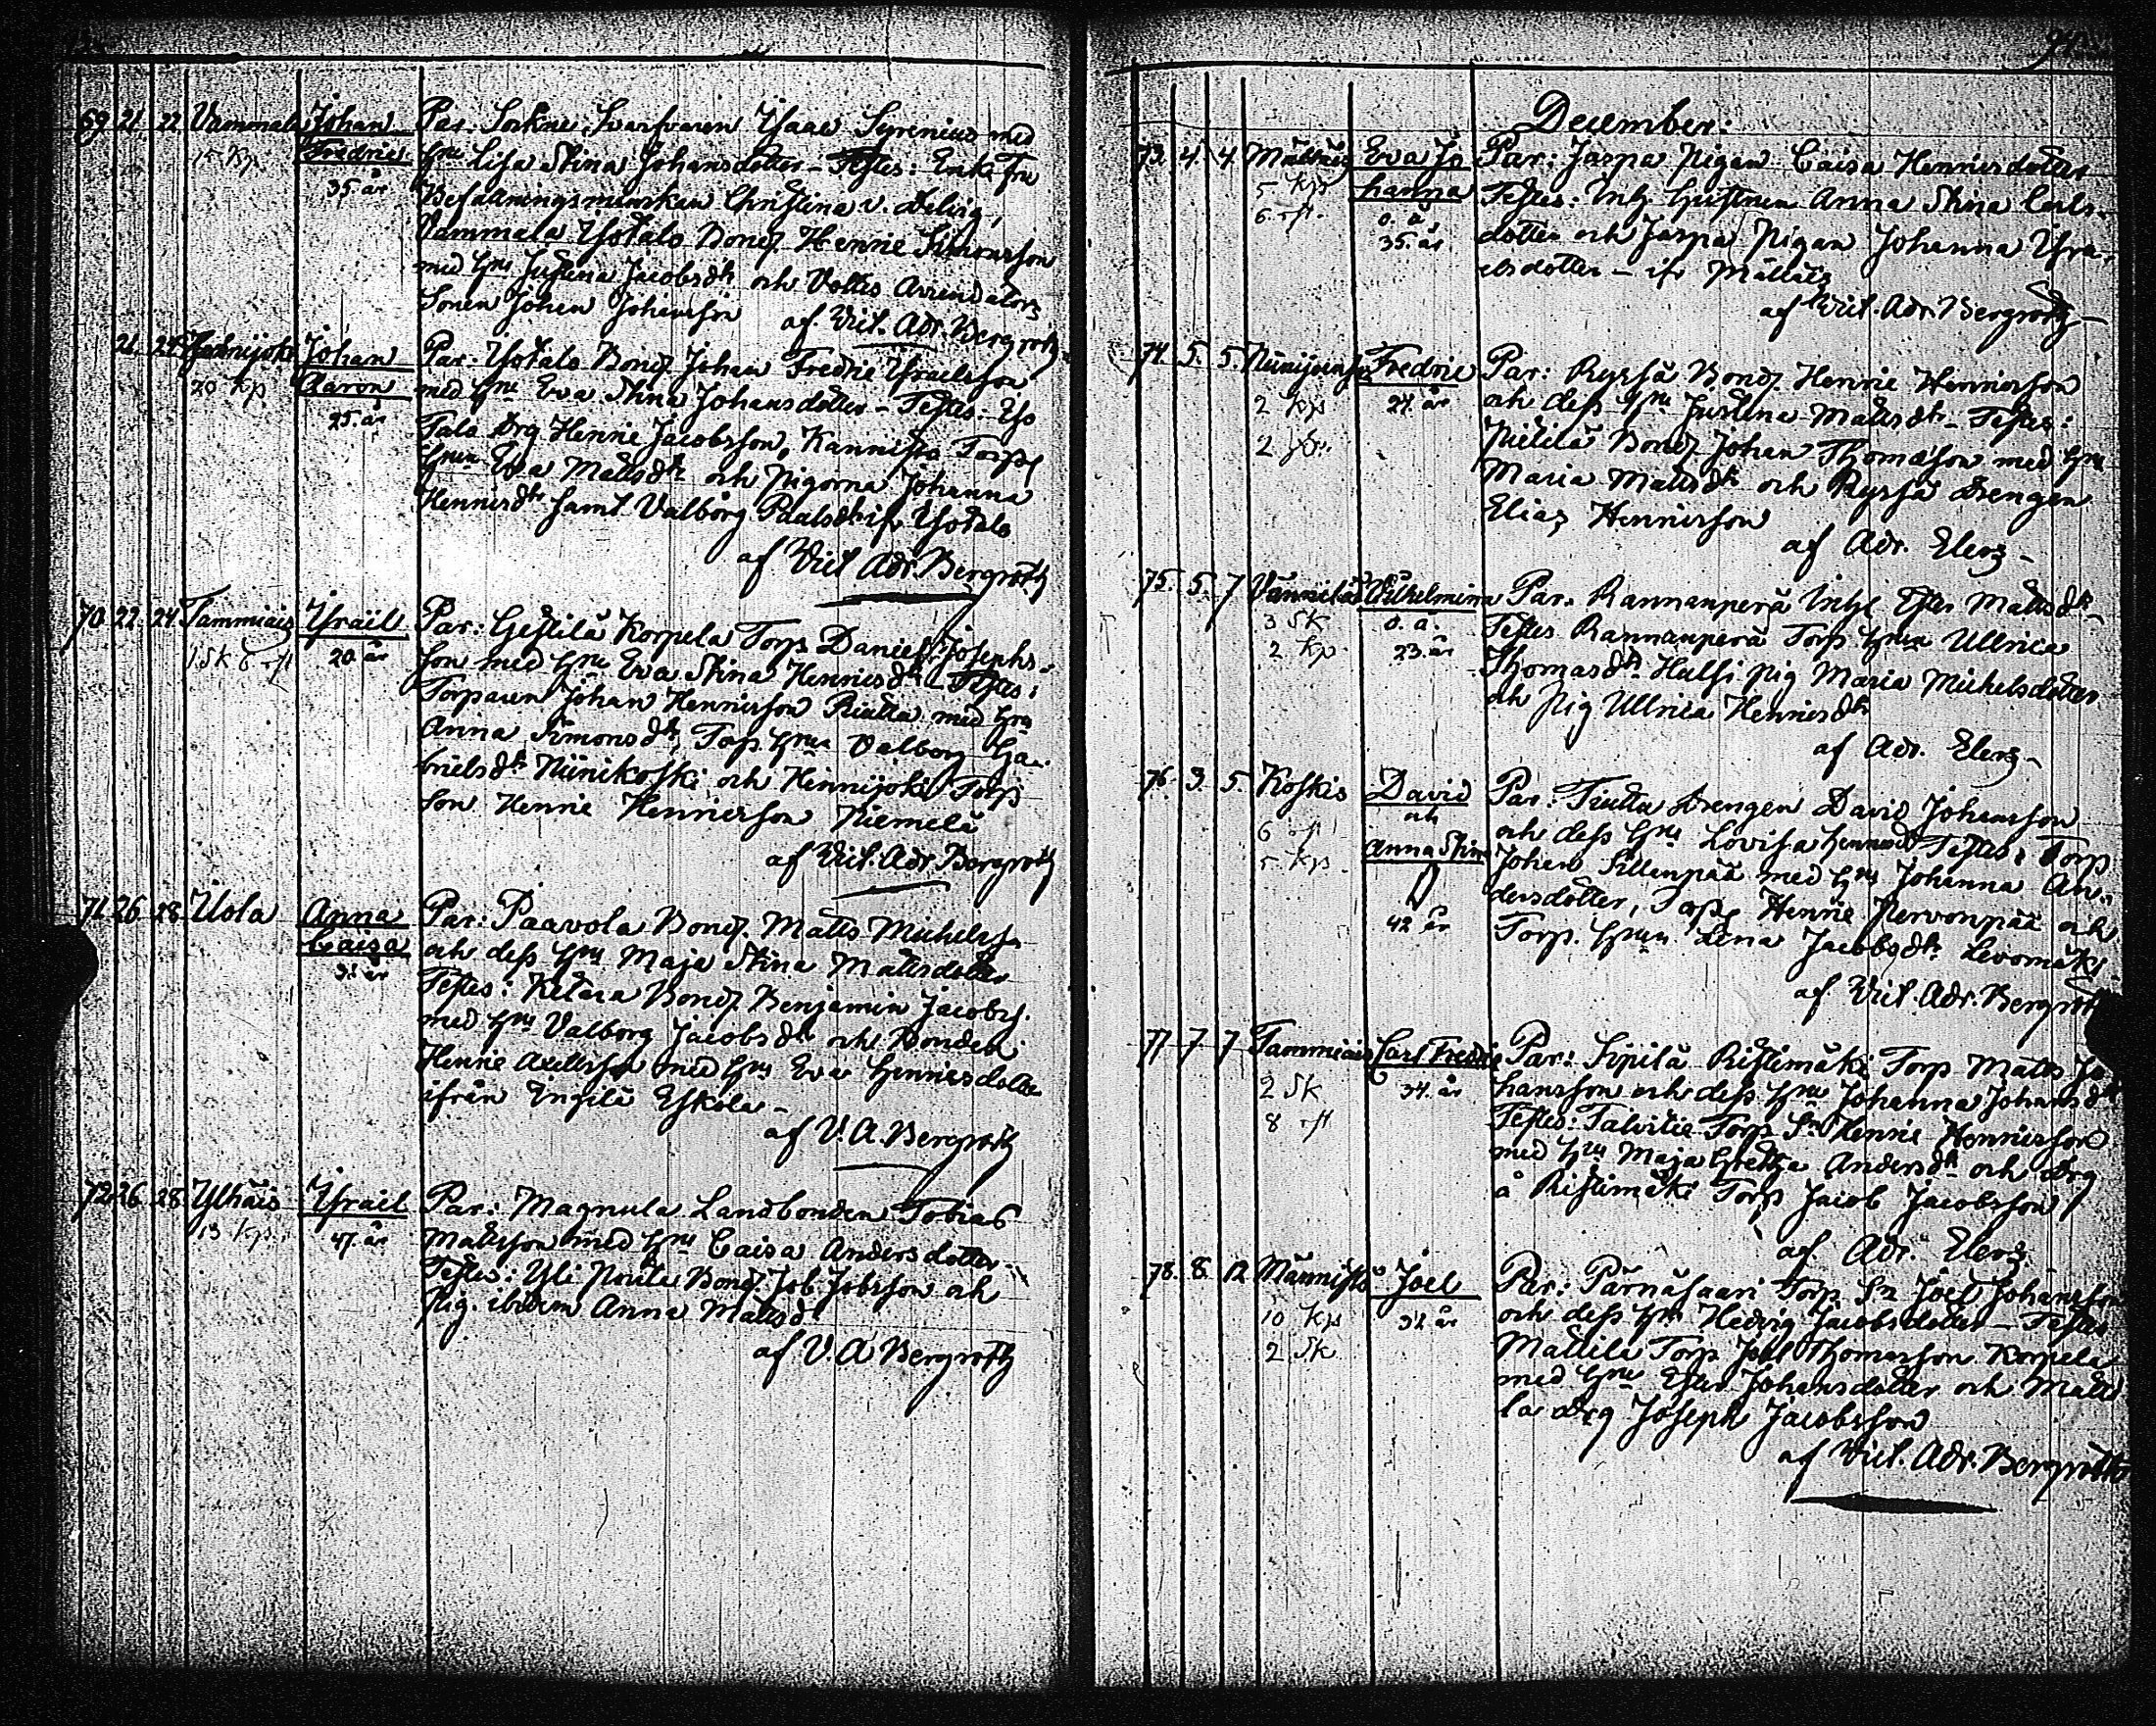 69. 21. 22. Vammala Johan Par. Sockne Svarfvaren Isaac Syrenius med
15 Kp. Fredric hu Lisa Stina Johansdotter - Testes: Enke Fru
35. år Befallningsmanskan Christina v. Delvig,
Vammala Isotalo Bond. Henric Simonsson
med hu Justina Jacobsdr och Voltis Arrendators
Sonen Johan Johansson af Vict. Adr. Bergroth
21. 24. Johan Par: Isotalo Bond. Johan Fredric Israelsson
20 Kp Aaron med hu Eva Stina Johansdotter - Testes: Iso
25. år Talo Drg Henric Jacobsson, Kannisto Torp
hun Eva Mattsdr och Pigorna Johanna
Henricsdr samt Valborg Paulsdr ifr Isotalo
af Vict Adr. Bergroth
70. 22. 24. Tammiais Israël Par: Gestilä Korpela Torp. Daniel Josephs-
1 Sk 6 rst 20 år son med hu Eva Stina Henricsdr - Testes:
Torparen Johan Henricsson Riutta med hu
Anna Simonsdr, Torp hun Valborg Ga-
brielsdr Niinikoski och Hinnijoki Torp
Son Henric Henricsson Niemelä
af Vict. Adr. Bergroth
71. 26. 28. Uola Anna Par: Paavola Bond. Matts Michelss.
Caisa och dess hu Maja Stina Mattsdotter
år Testes: Ketara Bond. Benjamin Jacobss.
med hu Valborg Jacobsdr och Bonden
Henric Axelsson med hu Eva Henricsdotter
ifrån Ingilä Eskola -
af V. A. Bergroth
72. 26. 28. Ylhäis Israel Par: Magnula Landbonden Tobias
13 Kp. 47. år Mattsson med hu Caisa Andersdotter -
Testes: Yli Nouta Bond. Job Jobsson och
Pig. ibidem Anna Mattsd
af V. A Bergroth
94.
December:
73. 4. 4. Mällais Eva Jo Par: Jaspa Pigan Caisa Henricsdotter
5 Kp hanna Testes: Inh. Hustrun Anna Stina Carls-
6 rst. o. ä dotter och Jaspa Pigan Johanna Isra-
35. år elsdotter - ifr Mällais
af Vict. Adr. Bergroth -
74. 5. 5. Niinijoensu Fredric Par: Ryssä Bond. Henric Henricsson
2 Kp 24. år och dess hu Justina Mattsdr - Testes:
2 Pietilä Bond. Johan Thomasson med hu
Maria Mattsdr och Ryssä Drengen
Elias Henricsson
af Adr. Elers -
75. 5. 7 Vännilä Vilhelmina Par. Rannanperä Inh. Ester Mattsdr
3 Sk o. ä. Testes Rannanperä Torp hun Ullrica
2 Kp. 23. år Thomasdr Hulsi Pig Maria Michelsdotter
och Pig Ullrica Henricsdr
af Adr. Elers -
76. 3. 5. Koskis David Par: Tiutta Drengen David Johansson
och och dess hu Lovisa Henricsd Testes: Torp
6 rst Anna Stina Johan Sillenpää med hu Johanna An-
5 Kp dersdotter, Torp Henric Pervonpää och
42 år Torp. hun Lena Jacobsdr Levomäki
af Vict. Adr. Bergroth
77. 7. 7 Tammiais Carl Fredric Par: Sipilä Ristimäki Torp Matts Jo
2 Sk 34. år hansson och dess hu Johanna Johansdr
8 rst Testes: Talvitie Torp Sn Henric Henricsson
med hu Maja Gretha Andersdr och Drg
å Ristimäki Torp Jacob Jacobsson
af Adr. Elers.
78. 8. 12 Männistö Joel Par: Pärnäsaari Torp Sn Joel Johansson
10 Kp 32 år och dess hu Hedvig Jacobsdotter - Testes
2 Sk Mattila Torp Joel Thomasson Korpela
med hu Ester Johansdotter och Matti
la Drg Joseph Jacobsson
af Vict. Adr. Bergroth